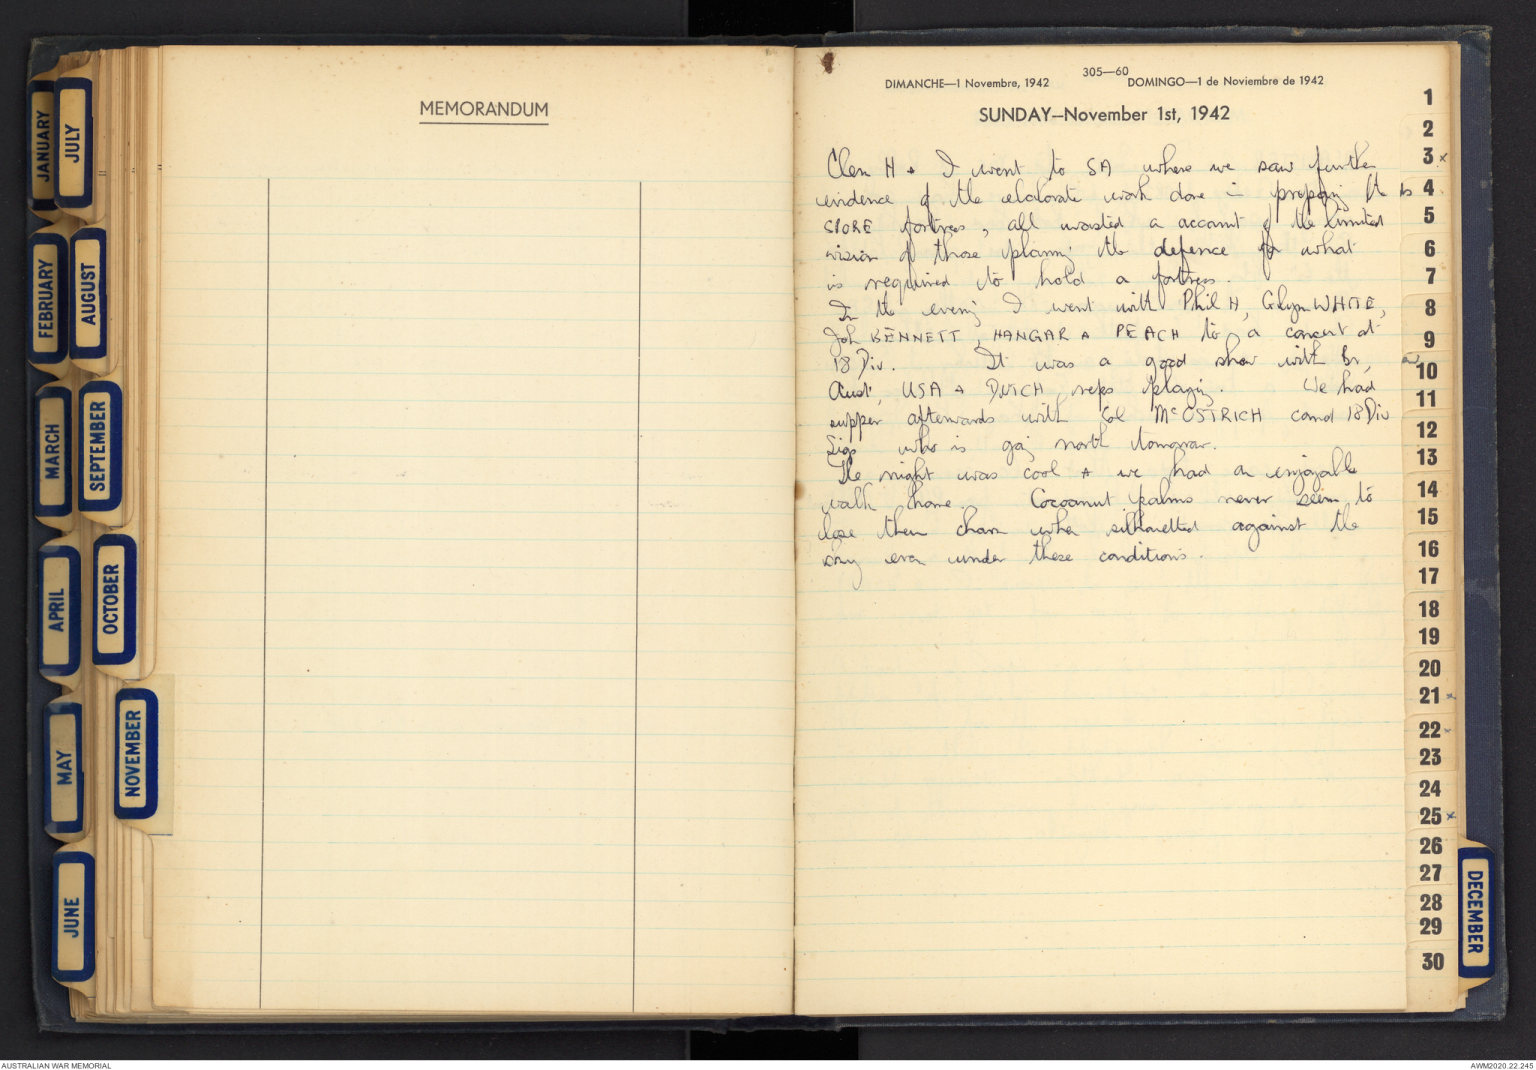 MEMORANDUM
305—60
DIMANCHE—1 Novembre, 1942 DOMINGO—1 de Noviembre de 1942
SUNDAY—November 1st, 1942
Clem H + I went to SA where we saw further
evidence of the elaborate work done in preparing
SPORE fortress, all wasted on account of the limited
vision of those planning the defence for what
is required to hold a fortress.
In the evening I went with Phil H, Glyn WHITE,
Joh BENNETT, HANGAR + PEACH to a concert at
18 Div. It was a good show with Br,
Aust, USA + DUTCH reps playing. We had
supper afterwards with Col McOSTRICH comd 18 Div
Sigs who is going north tomorrow.
The night was cool + we had an enjoyable
walk home. Cocoanut palms never seem to
lose their charm when silhouetted against the
sky even under these conditions.
JANUARY
FEBRUARY
MARCH
APRIL
MAY
JUNE
JULY
AUGUST
SEPTEMBER
OCTOBER
NOVEMBER
DECEMBER
1
2
3 x
4
5
6
7
8
9
10
11
12
13
14
15
16
17
18
19
20
21 x
22 x
23
24
25 x
26
27
28
29
30
AUSTRALIAN WAR MEMORIAL
AWM2020.22.245